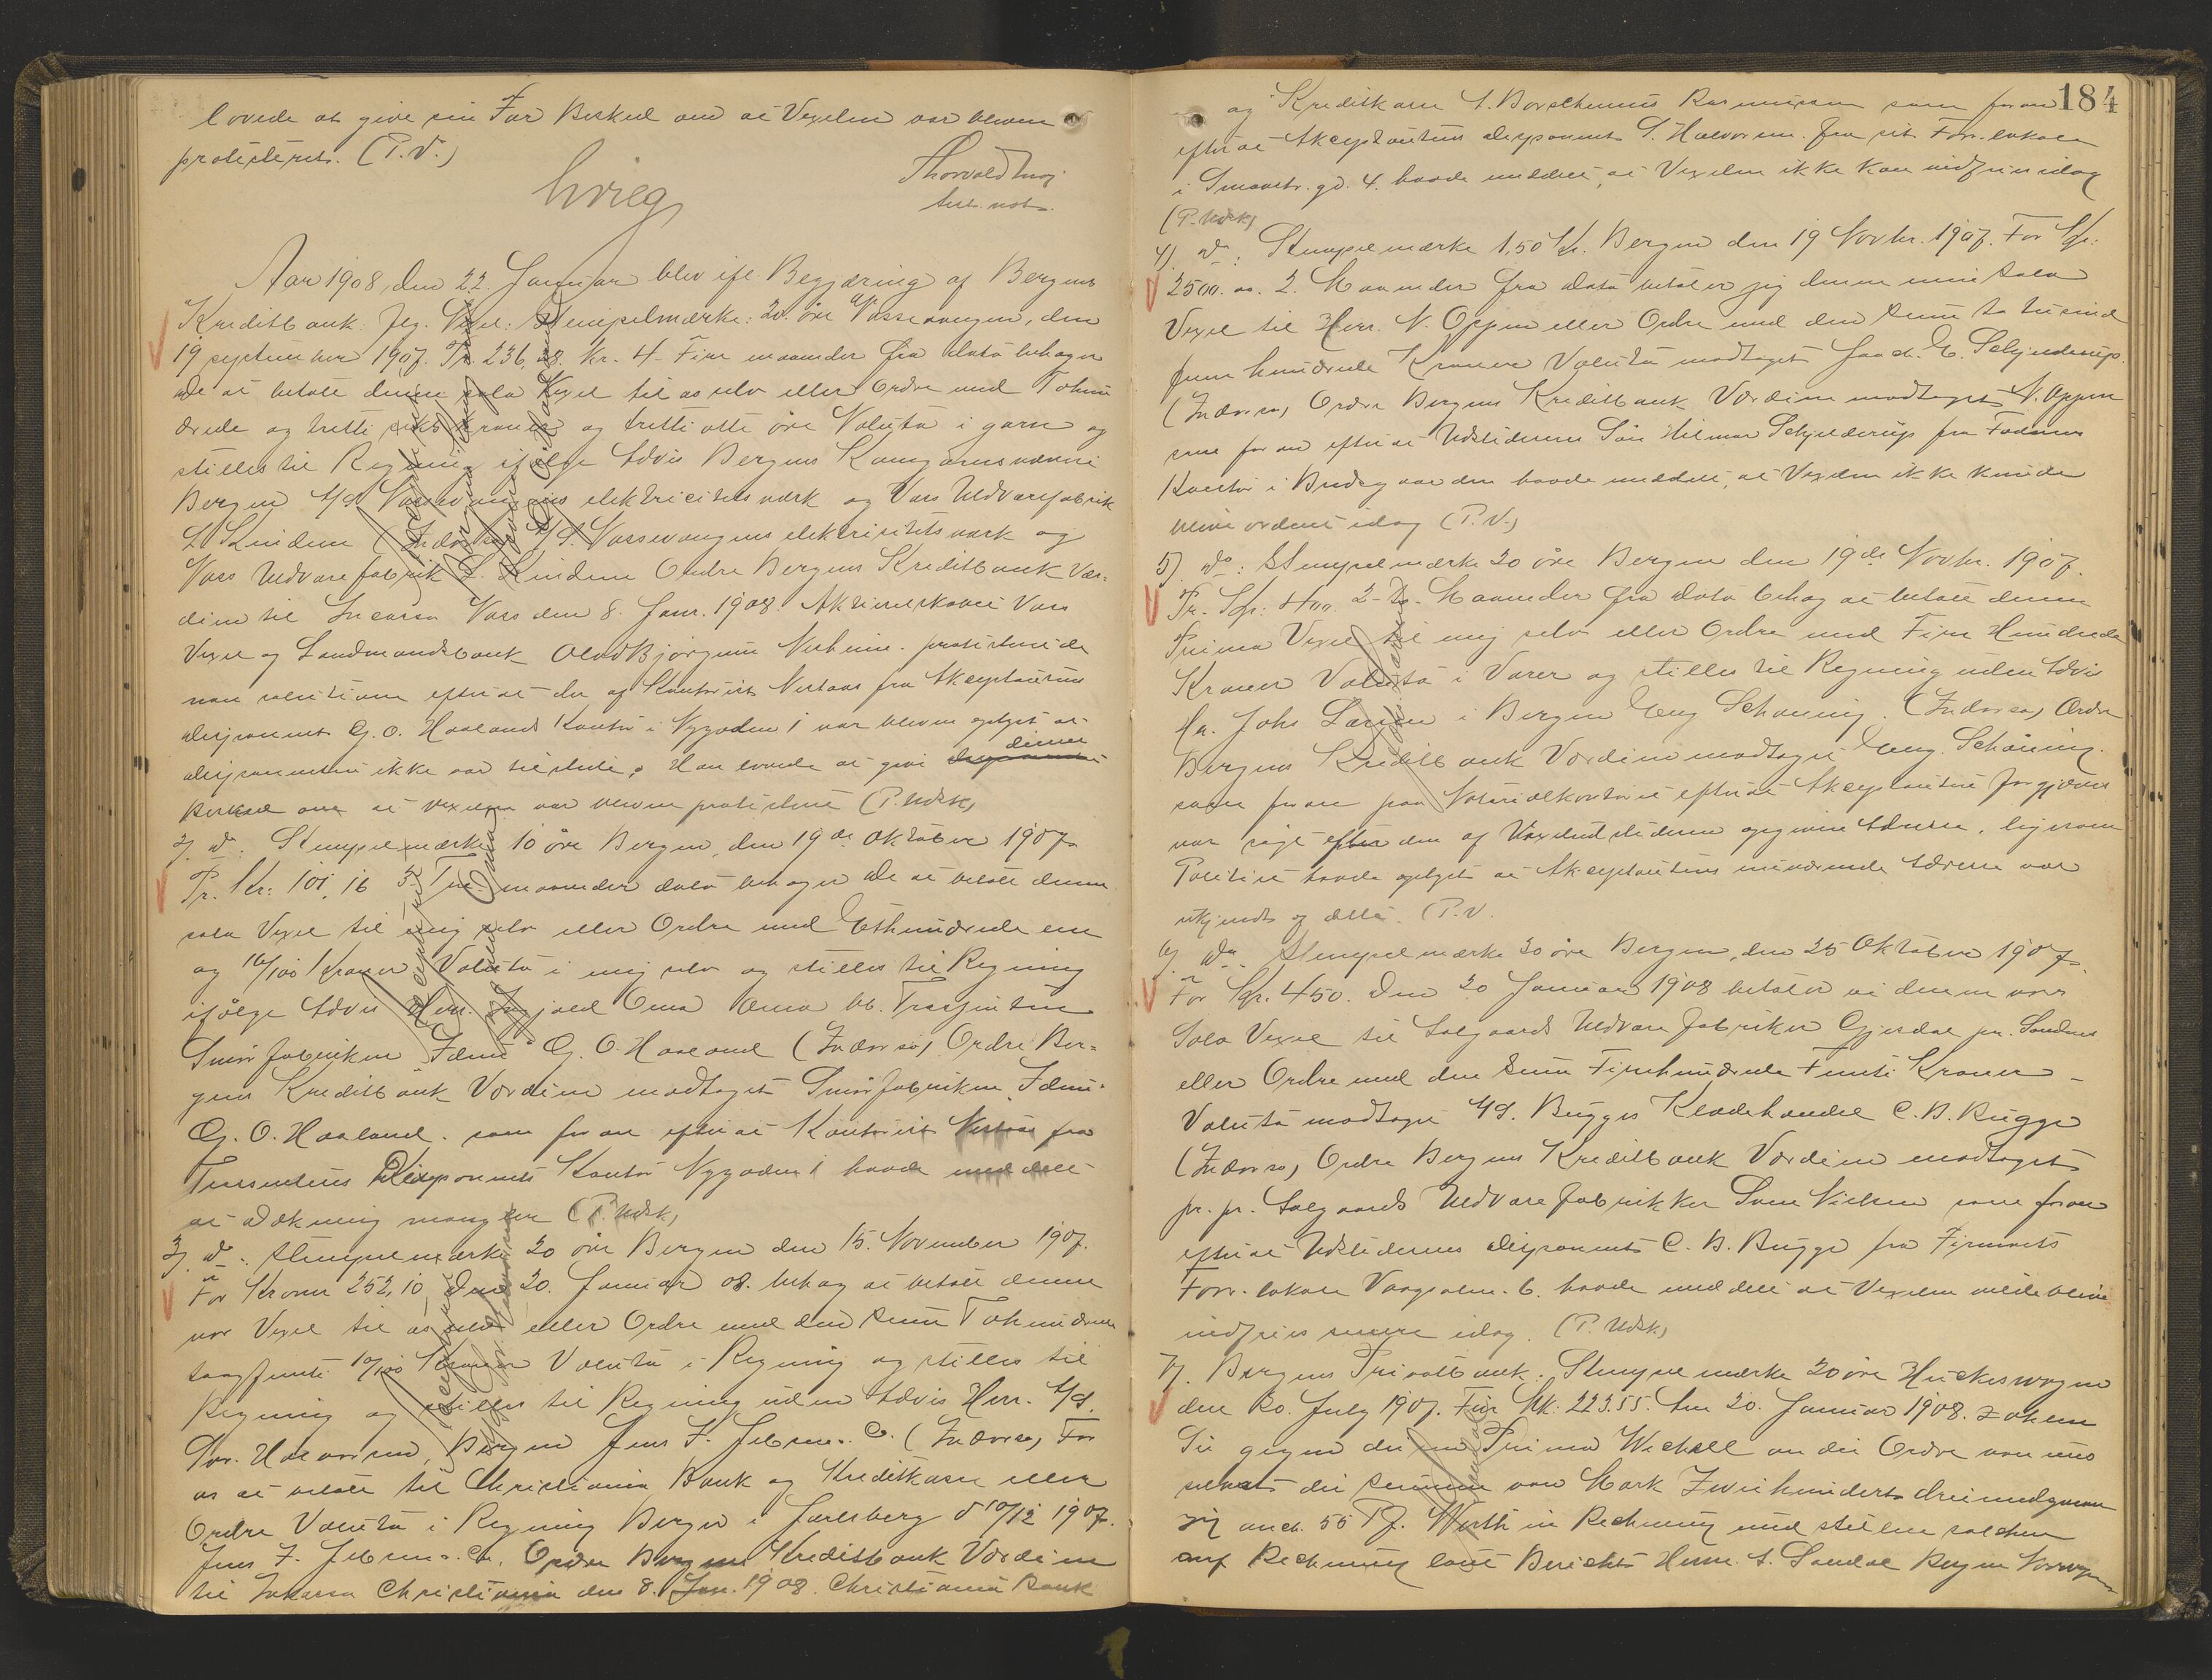 lovede at give sin Far Besked om at Vexelen var bleven
protesteret. (P.V.)
Thorvald
Aar 1908, den 22. Januar blev ifl. Begjæring af Bergens
Kreditbank Jeg. Vexel: Stempelmærke: 20 öre Vossevangen, den
19 september 1907. Pr. 236,38 Kr. 4 - Fire maaneder fra dato behager
de at betale denne sola Vexel til os selv eller Ordre med Tohun
drede og tretti seks kroner og tretti otte öre Valuta i garn og
stilles til Regning ifølge Advis Bergens Kamgarnspinneri
Bergen A/S Vossevangens elektricitetsværk og Voss Uldvarefabrik
L Lindem (Indorso) A/S. Vossevangens elektricitetsværk og
Voss Uldvarefabrik L. Lindem Ordre Bergens Kreditbank Vær-
dien til Incasso Voss den 8. Janr. 1908. Aktieselskabet Voss
Vexel og Landmandsbank Olav Bjørgum protesterede
non solutione efterat der af Kontorist Nestaas fra Akceptantens
disponent G. O. Haalands Kontor i Nygaden 1 var bleven oplyst at
disponenten ikke var tilstede. Han lovede at give denne
Besked om at vexelen var bleven protesteret (P. Udsk)
2) do: Stempelmærke 10 öre Bergen, den 19de Oktober 1907
Pr. Kr: 101,16 3. Tre maaneder dato behager De at betale denne
sola Vexel til mig selv eller Ordre med Ethundrede en
og 16/100 Kroner Valuta i mig selv og stilles til Regning
ifølge Advis Herr. Ingjald Oma Trassenten
Smörfabriken "Idun" G. O. Haaland (Indorso) Ordre Ber-
gens Kreditbank Værdien modtaget Smörfabriken Idun
G. O. Haaland. som foran efterat Kontorist Nestaas fra
Trassentens Disponents Kontor Nygaden 1 havde meddelt
at dækning mangler (P. Udsk)
3) do: Stempelmærke 20 öre Bergen den 15. November 1907.
For Kroner 252,10 Den 20. Januar 08. behag at betale denne
vor Vexel til os selv eller Ordre med den Sum Tohundrede
toogfemti 10/100 Kroner Valuta i Regning og stilles til
Regning og stilles til Regning uden Advis Herr. A/S.
Halvorsen, Bergen Jens F. Jebsen & Co. (Indorso) For
os at betale til Christiania Bank og Kreditkasse eller
Ordre Valuta i Regning Berger i Jarlsberg d 10/12 1907.
Jens F. Jebsen & Co. Ordre Bergens Kreditbank Værdien
til Inkasso Christiania den 8. Jan. 1908. Christiania Bank
184
og Kreditkasse A. Borchenius Rasmussen som foran
efterat Akceptantens disponent S. Halvorsen fra sit Forr. lokale
i Smaastr. gd. 4. havde meddelt, at Vexelen ikke kan indfries idag
(P. Udsk)
4) do: Stempelmærke 1,50 Kr. Bergen den 19 Novbr. 1907. For Kr:
2500.00. 2. Maaneder fra dato betaler jeg denne min sola
Vexel til Herr. N. Oppen eller Ordre med den Sum to tusind
fem hundrede Kroner Valuta modtaget Joach. G. Schjelderup.
(Indorso) Ordre Bergens Kreditbank Værdien modtaget N. Oppen
som foran efterat Udstederens Søn Hilmar Schjelderup fra Faderens
Kontor i Bradgaarden havde meddelt, at Vexelen ikke kunde
blive ordnet idag (P.V.)
5) do: Stempelmærke 20 öre Bergen den 19de Novbr. 1907.
Pr. Kr: 400. 2-To-Maaneder fra dato behag at betale denne
Prima Vexel til mig selv eller Ordre med Fire Hundrede
Kroner Valuta i Varer og stilles til Regning uden Advis
Hr. Johs Larsen i Bergen Eug Schøning. (Indorso) Ordre
Bergens Kreditbank Værdien modtaget Eug. Schöning.
som foran paa Notarialkontoret efterat Akceptanten forgjæves
var søgt efter den af Vexeludstederen opgivne Adresse, ligesom
Politiet havde oplyst at Akceptantens nuværende Adresse var
ukjendt og dette. (P.V.
6) do: Stempelmærke 20 öre Bergen, den 25 Oktober 1907
For Kr. 450. Den 20 Januar 1908 betaler vi denne vor
Sola Vexel til Aalgaards Uldvarefabriker Gjesdal pr. Sandnes
eller Ordre med den Sum Firehundrede Femti Kroner -
Valuta modtaget A/S. Bugges Klædehandel C. B. Bugge
(Indorso) Ordre Bergens Kreditbank Værdien modtaget
pr. pr. Aalgaards Uldvarefabrikker Sven Nielsen som foran
efterat Udstederens disponent C. B. Bugge fra Firmaets
Forr. lokale Vaagsalm. 6. havde meddelt at Vexelen vilde blive
indfriet senere idag. (P. Udsk)
7). Bergens Privatbank: Stempelmærke 20 öre Hückeswagen
den 20. July 1907. Für Mk: 223.55. Am 20. Januar 1908. zahlen
Sie gegen diesen Prima Wechsel an die Ordre von uns
selbst die Summe von Mark Zweihundert dreiundzwan
zig auch. 55 Pf. Werth in Rechnung und stellen solchen
auf Rechnung laut Bericht Herrn. A. Sandal Bergen Norwegen